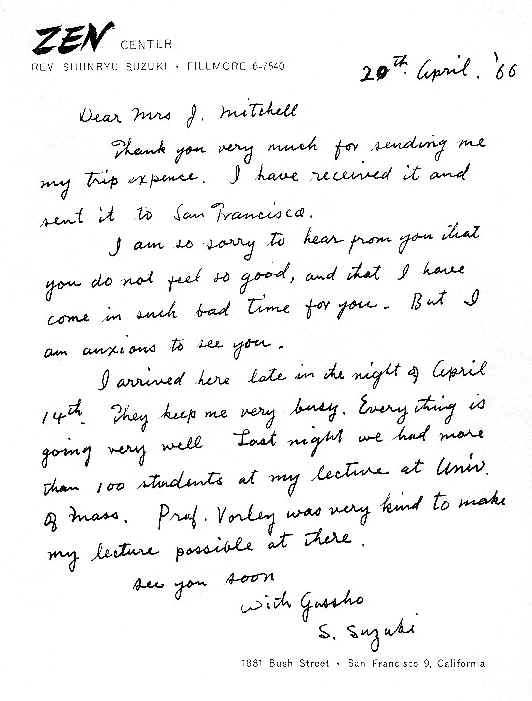 ZEN CENTER
REV. SHUNRYU SUZUKI • FILLMORE 6-7540
20th. April. '66
Dear Mrs J. Mitchell
Thank you very much for sending me
my trip expence. I have received it and
sent it to San Francisco.
I am so sorry to hear from you that
you do not feel so good, and that I have
come in such bad time for you. But I
am anxious to see you.
I arrived here late in the night of April
14th. They keep me very busy. Everything is
going very well Last night we had more
than 100 students at my lecture at Univ.
of Mass. Prof. Vorley was very kind to make
my lecture possible at there.
see you soon
With Gassho
S. Suzuki
1881 Bush Street • San Francisco 9, California